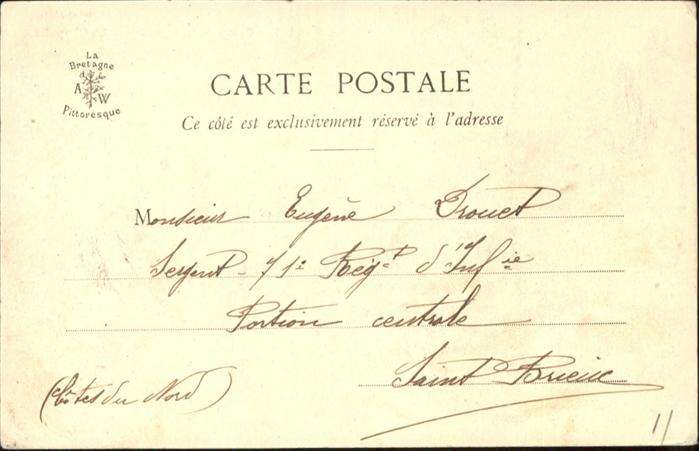 La
Bretagne
A W
Pittoresque
CARTE POSTALE
Ce côté est exclusivement réservé à l'adresse
Monsieur Eugène Drouet
Sergent - 71e Régt d'Infie
Portion centrale
Saint Brieuc
(Côtes du Nord)